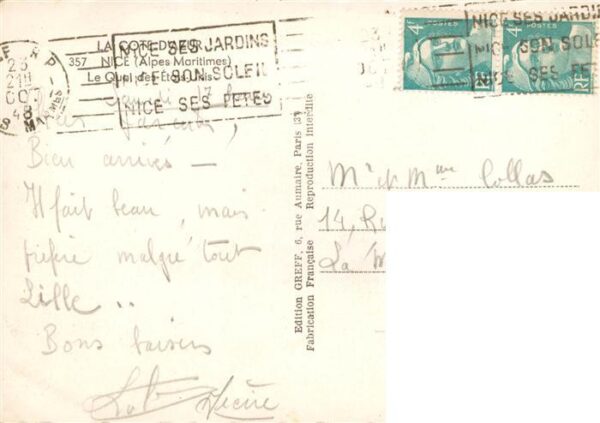 LA COTE D'AZUR
357 NICE (Alpes Maritimes)
Le Quai des États-Unis
NICE SES JARDINS
SON SOLEIL
NICE SES FÊTES
4F POSTES RF
4F POSTES RF
NICE SES JARDIN
SON SOLE
SES FÊTE
Bien arrivés —
Il fait beau, mais
préfère malgré tout
Lille ..
Bons baisers
Edition GREFF, 6, rue Aumaire, Paris (3e)
Fabrication Française Reproduction interdite
Mr et Mme Collas
14, Ru
La M